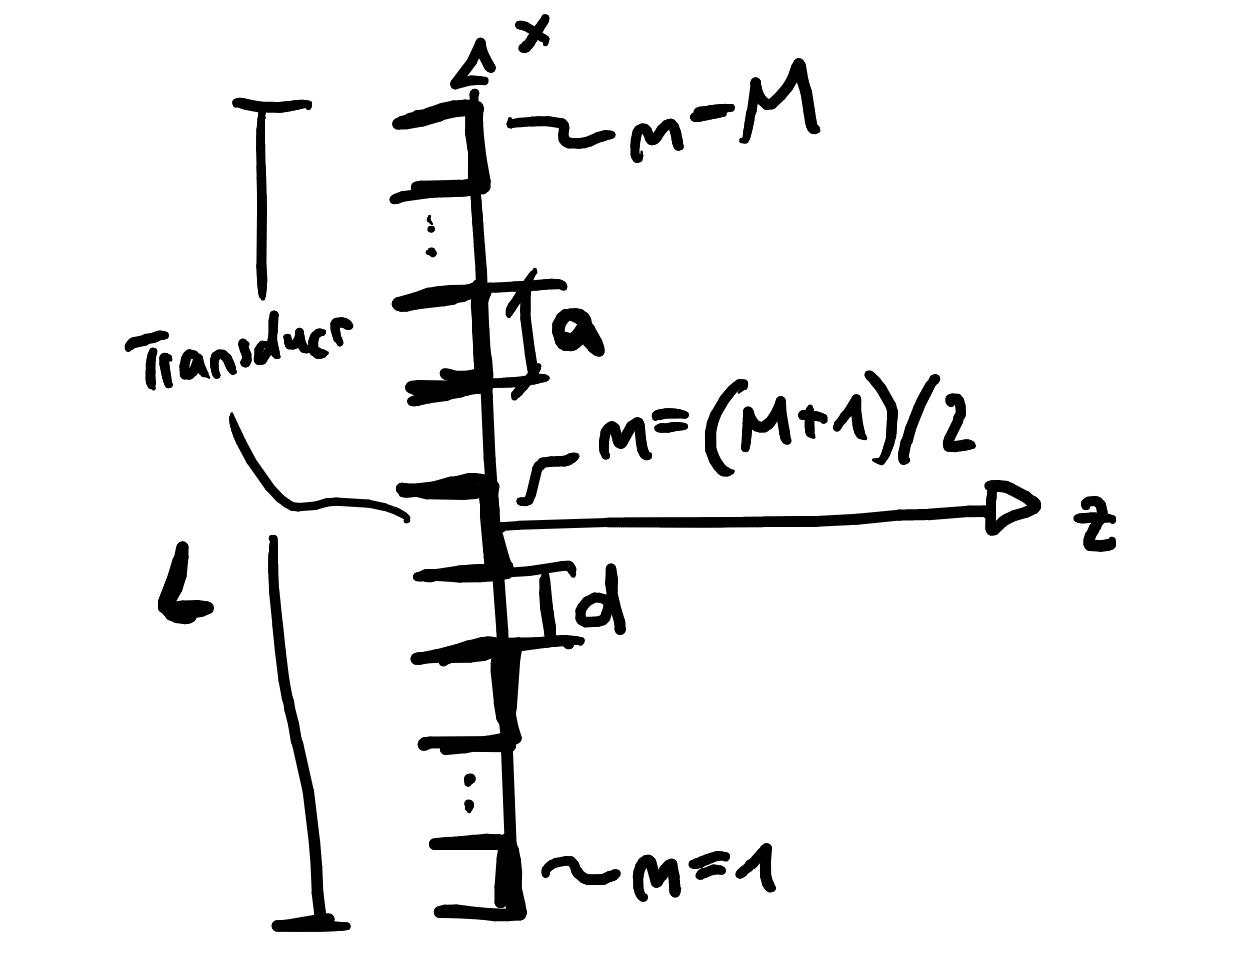 x
m=M
a
Transducr
m=(M+1)/2
z
L
d
m=1